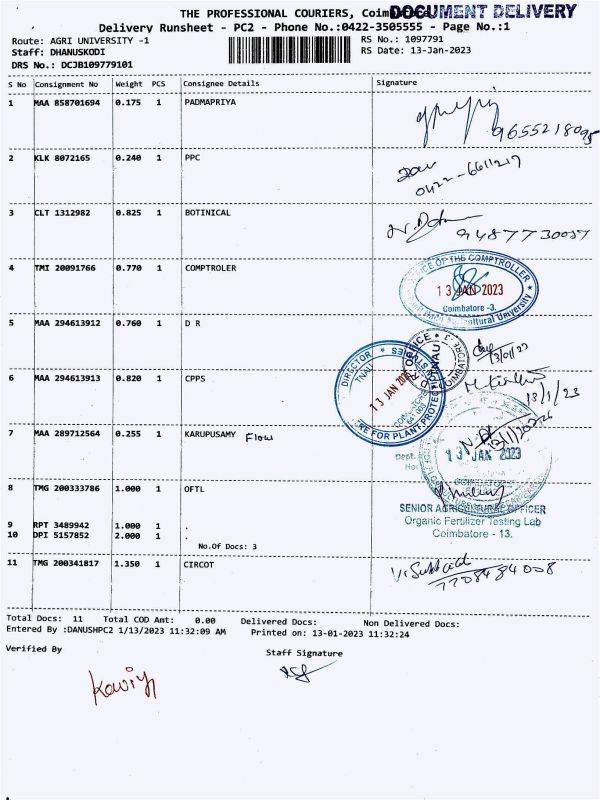 THE PROFESSIONAL COURIERS, Coimbatore
DOCUMENT DELIVERY
Delivery Runsheet - PC2 - Phone No.:0422-3505555 - Page No.:1
Route: AGRI UNIVERSITY -1
RS No.: 1097791
Staff: DHANUSKODI
RS Date: 13-Jan-2023
DRS No.: DCJB109779101
S No Consignment No Weight PCS Consignee Details Signature
1 MAA 858701694 0.175 1 PADMAPRIYA
9655218095
2 KLK 8072165 0.240 1 PPC
0422-6611219
3 CLT 1312982 0.825 1 BOTINICAL
9487730037
4 TMI 20091766 0.770 1 COMPTROLER
OFFICE OF THE COMPTROLLER
13 JAN 2023
Coimbatore -3.
Agricultural University
5 MAA 294613912 0.760 1 D R
13/01/23
DIRECTOR
TNAU
13 JAN 2023
CENTRE FOR PLANT PROTECTION
COIMBATORE
6 MAA 294613913 0.820 1 CPPS
13/1/23
7 MAA 289712564 0.255 1 KARUPUSAMY Flow
13 JAN 2023
Dept.
8 TMG 200333786 1.000 1 OFTL
SENIOR AGRICULTURAL OFFICER
Organic Fertilizer Testing Lab
Coimbatore - 13.
9 RPT 3489942 1.000 1 .
10 DPI 5157852 2.000 1 .
No.Of Docs: 3
11 TMG 200341817 1.350 1 CIRCOT
7708484008
Total Docs: 11 Total COD Amt: 0.00 Delivered Docs: Non Delivered Docs:
Entered By :DANUSHPC2 1/13/2023 11:32:09 AM Printed on: 13-01-2023 11:32:24
Verified By Staff Signature
Kaviya